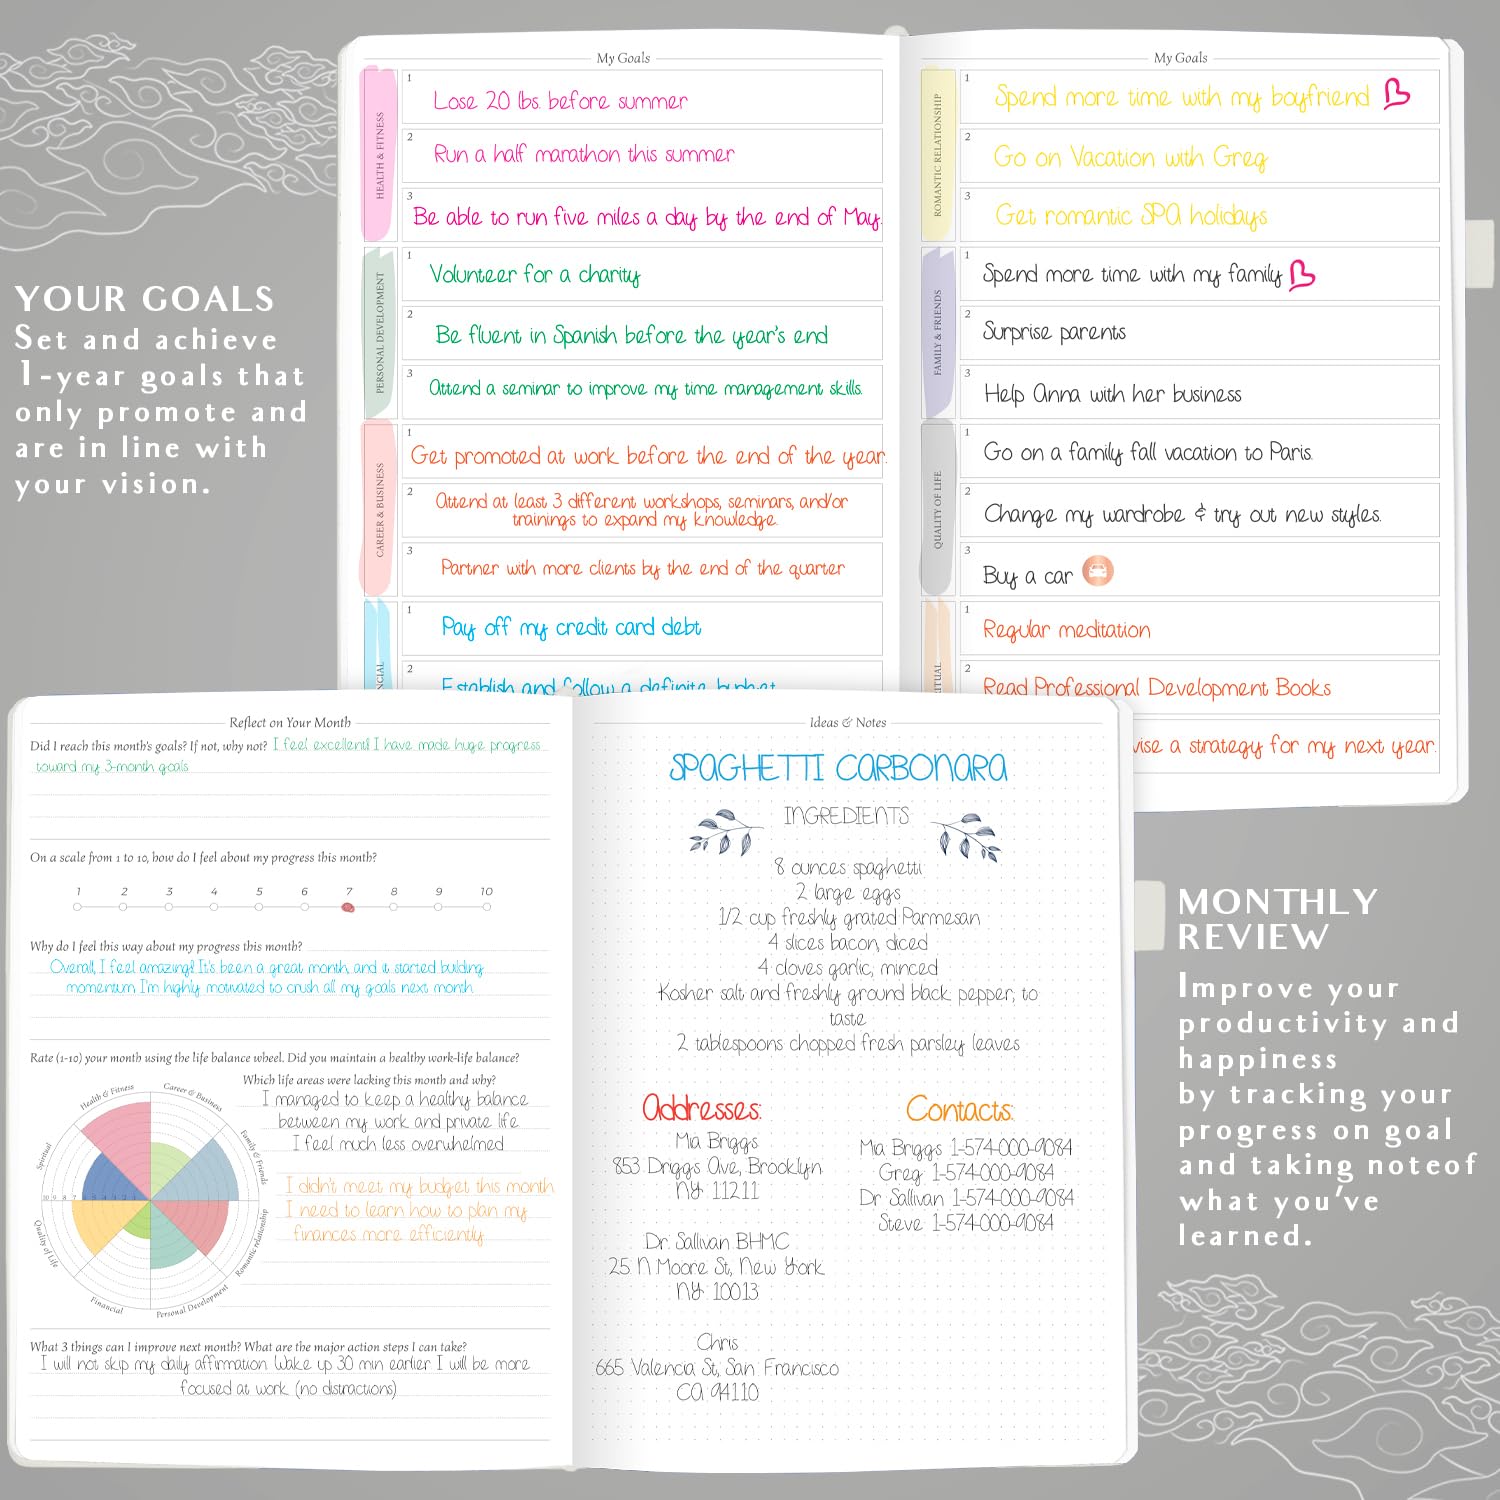 YOUR GOALS
Set and achieve
1-year goals that
only promote and
are in line with
your vision.
My Goals
HEALTH & FITNESS
1
Lose 20 lbs. before summer
2
Run a half marathon this summer
3
Be able to run five miles a day by the end of May.
PERSONAL DEVELOPMENT
1
Volunteer for a charity
2
Be fluent in Spanish before the year's end
3
Attend a seminar to improve my time management skills.
CAREER & BUSINESS
1
Get promoted at work before the end of the year.
2
Attend at least 3 different workshops, seminars, and/or
trainings to expand my knowledge.
3
Partner with more clients by the end of the quarter
NCIAL
1
Pay off my credit card debt
2
Establish and follow a definite budget
My Goals
ROMANTIC RELATIONSHIP
1
Spend more time with my boyfriend
2
Go on Vacation with Greg
3
Get romantic SPA holidays
FAMILY & FRIENDS
1
Spend more time with my family
2
Surprise parents
3
Help Anna with her business
QUALITY OF LIFE
1
Go on a family fall vacation to Paris.
2
Change my wardrobe & try out new styles.
3
Buy a car
RITUAL
1
Regular meditation
2
Read Professional Development Books
vise a strategy for my next year.
Reflect on Your Month
Did I reach this month's goals? If not, why not? I feel excellent! I have made huge progress
toward my 3-month goals
On a scale from 1 to 10, how do I feel about my progress this month?
1 2 3 4 5 6 7 8 9 10
Why do I feel this way about my progress this month?
Overall, I feel amazing! It's been a great month, and it started building
momentum. I'm highly motivated to crush all my goals next month.
Rate (1-10) your month using the life balance wheel. Did you maintain a healthy work-life balance?
Health & Fitness
Career & Business
Family & Friends
Romantic relationship
Personal Development
Financial
Quality of Life
Spiritual
10 9 8 7 6 5 4 3 2 1
Which life areas were lacking this month and why?
I managed to keep a healthy balance
between my work and private life.
I feel much less overwhelmed
I didn't meet my budget this month
I need to learn how to plan my
finances more efficiently.
What 3 things can I improve next month? What are the major action steps I can take?
I will not skip my daily affirmation. Wake up 30 min earlier. I will be more
focused at work (no distractions)
Ideas & Notes
SPAGHETTI CARBONARA
INGREDIENTS
8 ounces spaghetti
2 large eggs
1/2 cup freshly grated Parmesan
4 slices bacon, diced
4 cloves garlic, minced
Kosher salt and freshly ground black pepper, to
taste
2 tablespoons chopped fresh parsley leaves
Addresses:
Mia Briggs
853 Driggs Ave, Brooklyn
NY 11211
Dr. Sallivan BHMC
25 N Moore St, New York
NY 10013
Chris
665 Valencia St, San Francisco
CA 94110
Contacts:
Mia Briggs 1-574-000-9084
Greg 1-574-000-9084
Dr Sallivan 1-574-000-9084
Steve 1-574-000-9084
MONTHLY
REVIEW
Improve your
productivity and
happiness
by tracking your
progress on goal
and taking noteof
what you've
learned.